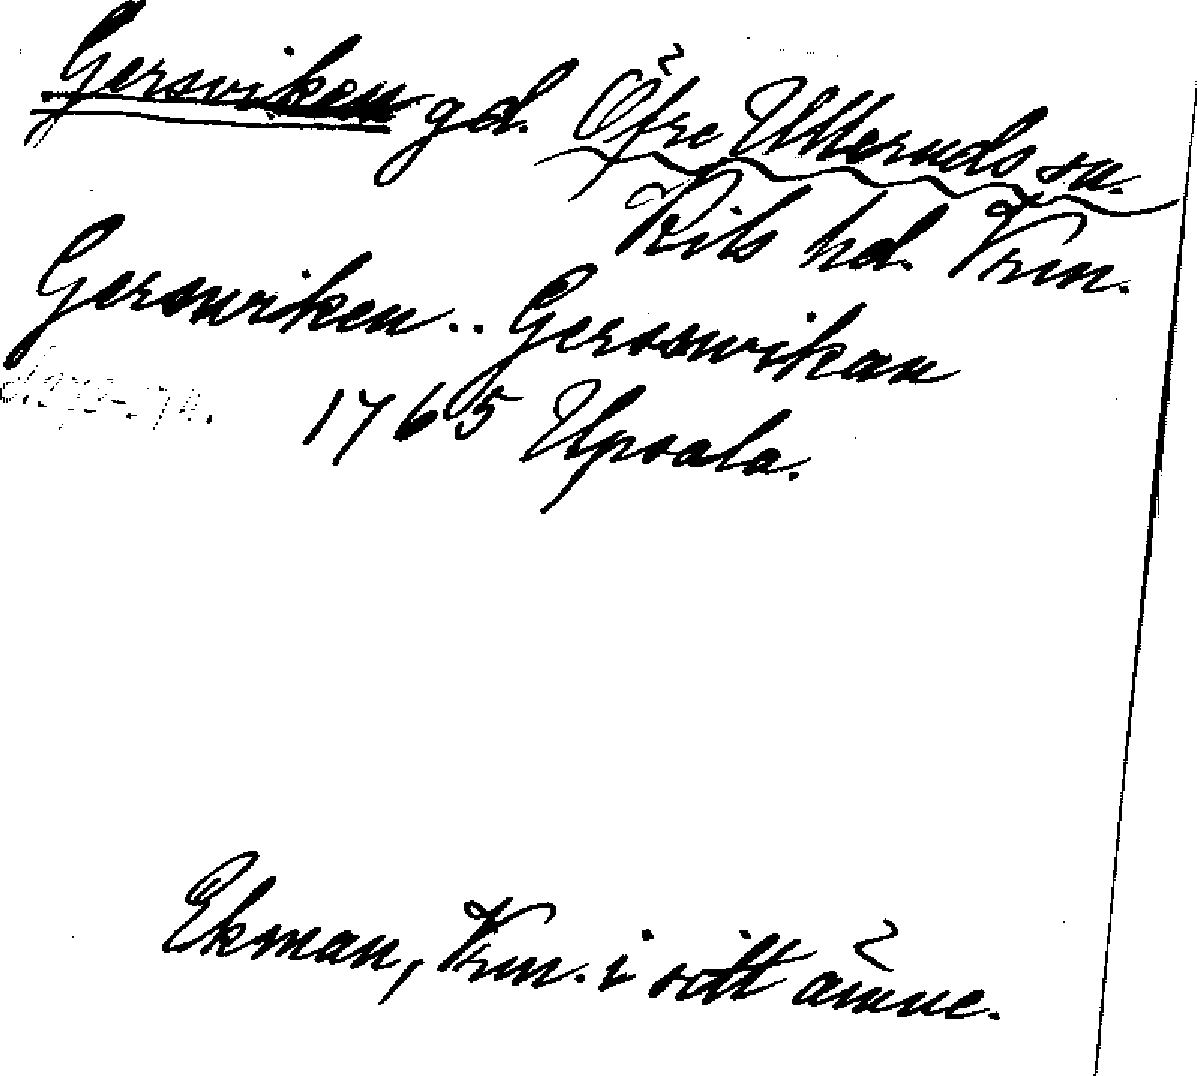 Gersviken gd. Öfre Ulleruds sn.
Kils hd. Vrm.
Gersswiken .. Gersswikan
1765 Upsala.
Ekman, Vrm. i sitt ämne.